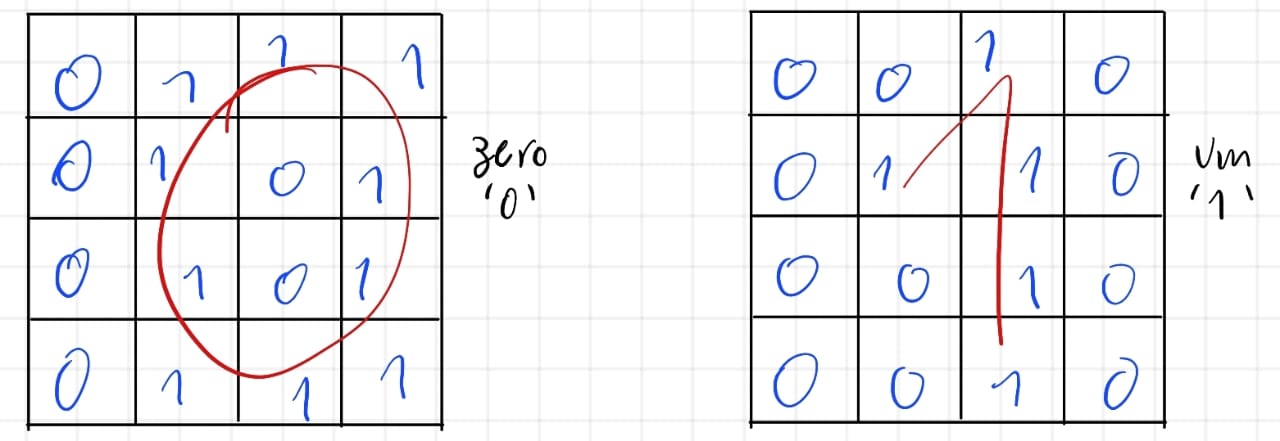 0 1 1 1
0 1 0 1
0 1 0 1
0 1 1 1
zero
'0'
0 0 1 0
0 1 1 0
0 0 1 0
0 0 1 0
Um
'1'